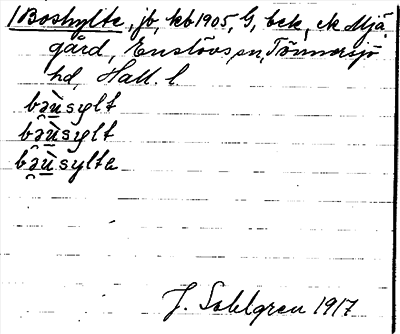 Boshylte, jb, kb 1905, G, bek, ek Mjä-
gård, Enslövs sn, Tönnersjö
hd, Hall. l.
bəùsylt
bəùsylt
bəùsylte
J. Sahlgren 1917